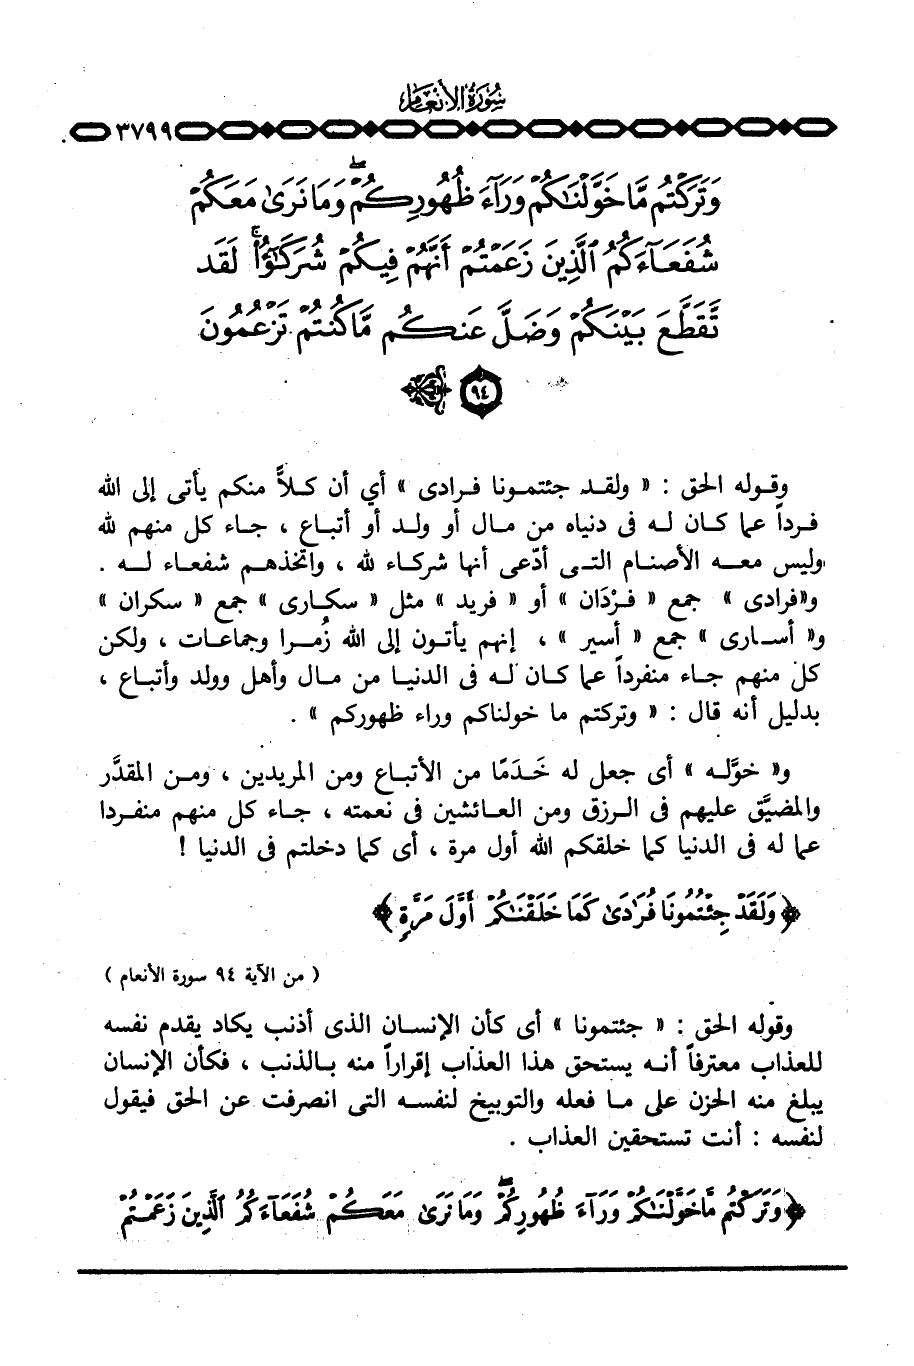 سورة الأنعام
٣٧٩٩
وَتَرَكْتُم مَّا خَوَّلْنَٰكُمْ وَرَآءَ ظُهُورِكُمْ ۖ وَمَا نَرَىٰ مَعَكُمْ
شُفَعَآءَكُمُ ٱلَّذِينَ زَعَمْتُمْ أَنَّهُمْ فِيكُمْ شُرَكَٰٓؤُا۟ ۚ لَقَد
تَّقَطَّعَ بَيْنَكُمْ وَضَلَّ عَنكُم مَّا كُنتُمْ تَزْعُمُونَ
٩٤ ﴾
وقوله الحق : « ولقد جئتمونا فرادى » أي أن كلاًّ منكم يأتى إلى الله
فرداً عما كان له فى دنياه من مال أو ولد أو أتباع ، جاء كل منهم لله
وليس معه الأصنام التى أدّعى أنها شركاء لله ، واتخذهم شفعاء له .
و«فرادى » جمع « فرْدَان » أو « فريد » مثل « سكارى » جمع « سكران »
و« أسارى » جمع « أسير » ، إنهم يأتون إلى الله زُمرا وجماعات ، ولكن
كل منهم جاء منفرداً عما كان له فى الدنيا من مال وأهل وولد وأتباع ،
بدليل أنه قال : « وتركتم ما خولناكم وراء ظهوركم » .
و« خوَّله » أى جعل له خَدَمًا من الأتباع ومن المريدين ، ومن المقدَّر
والمضيَّق عليهم فى الرزق ومن العائشين فى نعمته ، جاء كل منهم منفردا
عما له فى الدنيا كما خلقكم الله أول مرة ، أى كما دخلتم فى الدنيا !
﴿ وَلَقَدْ جِئْتُمُونَا فُرَٰدَىٰ كَمَا خَلَقْنَٰكُمْ أَوَّلَ مَرَّةٍ ﴾
( من الآية ٩٤ سورة الأنعام )
وقوله الحق : « جئتمونا » أى كأن الإنسان الذى أذنب يكاد يقدم نفسه
للعذاب معترفاً أنه يستحق هذا العذاب إقراراً منه بالذنب ، فكأن الإنسان
يبلغ منه الحزن على ما فعله والتوبيخ لنفسه التى انصرفت عن الحق فيقول
لنفسه : أنت تستحقين العذاب .
﴿ وَتَرَكْتُم مَّا خَوَّلْنَٰكُمْ وَرَآءَ ظُهُورِكُمْ ۖ وَمَا نَرَىٰ مَعَكُمْ شُفَعَآءَكُمُ ٱلَّذِينَ زَعَمْتُمْ